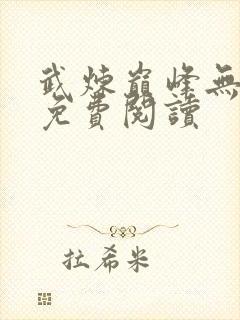 武煉巔峰無
免費閱讀
拉希米